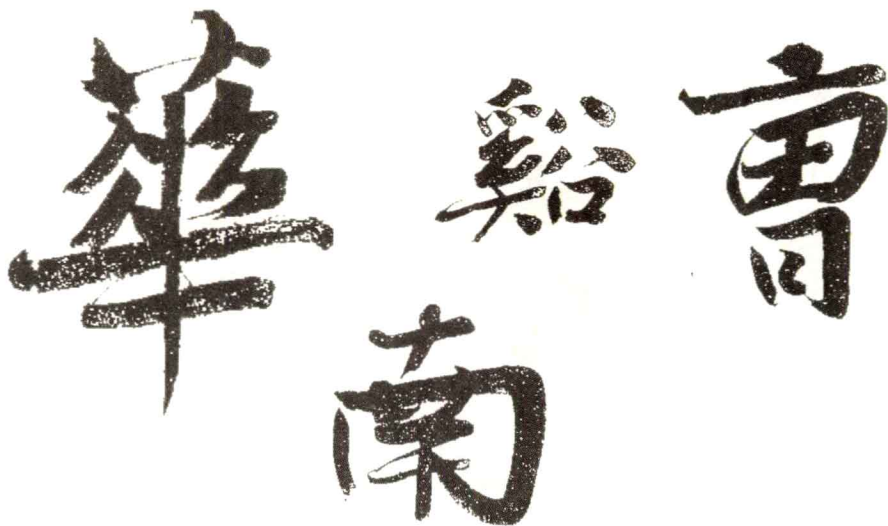 曹谿南華